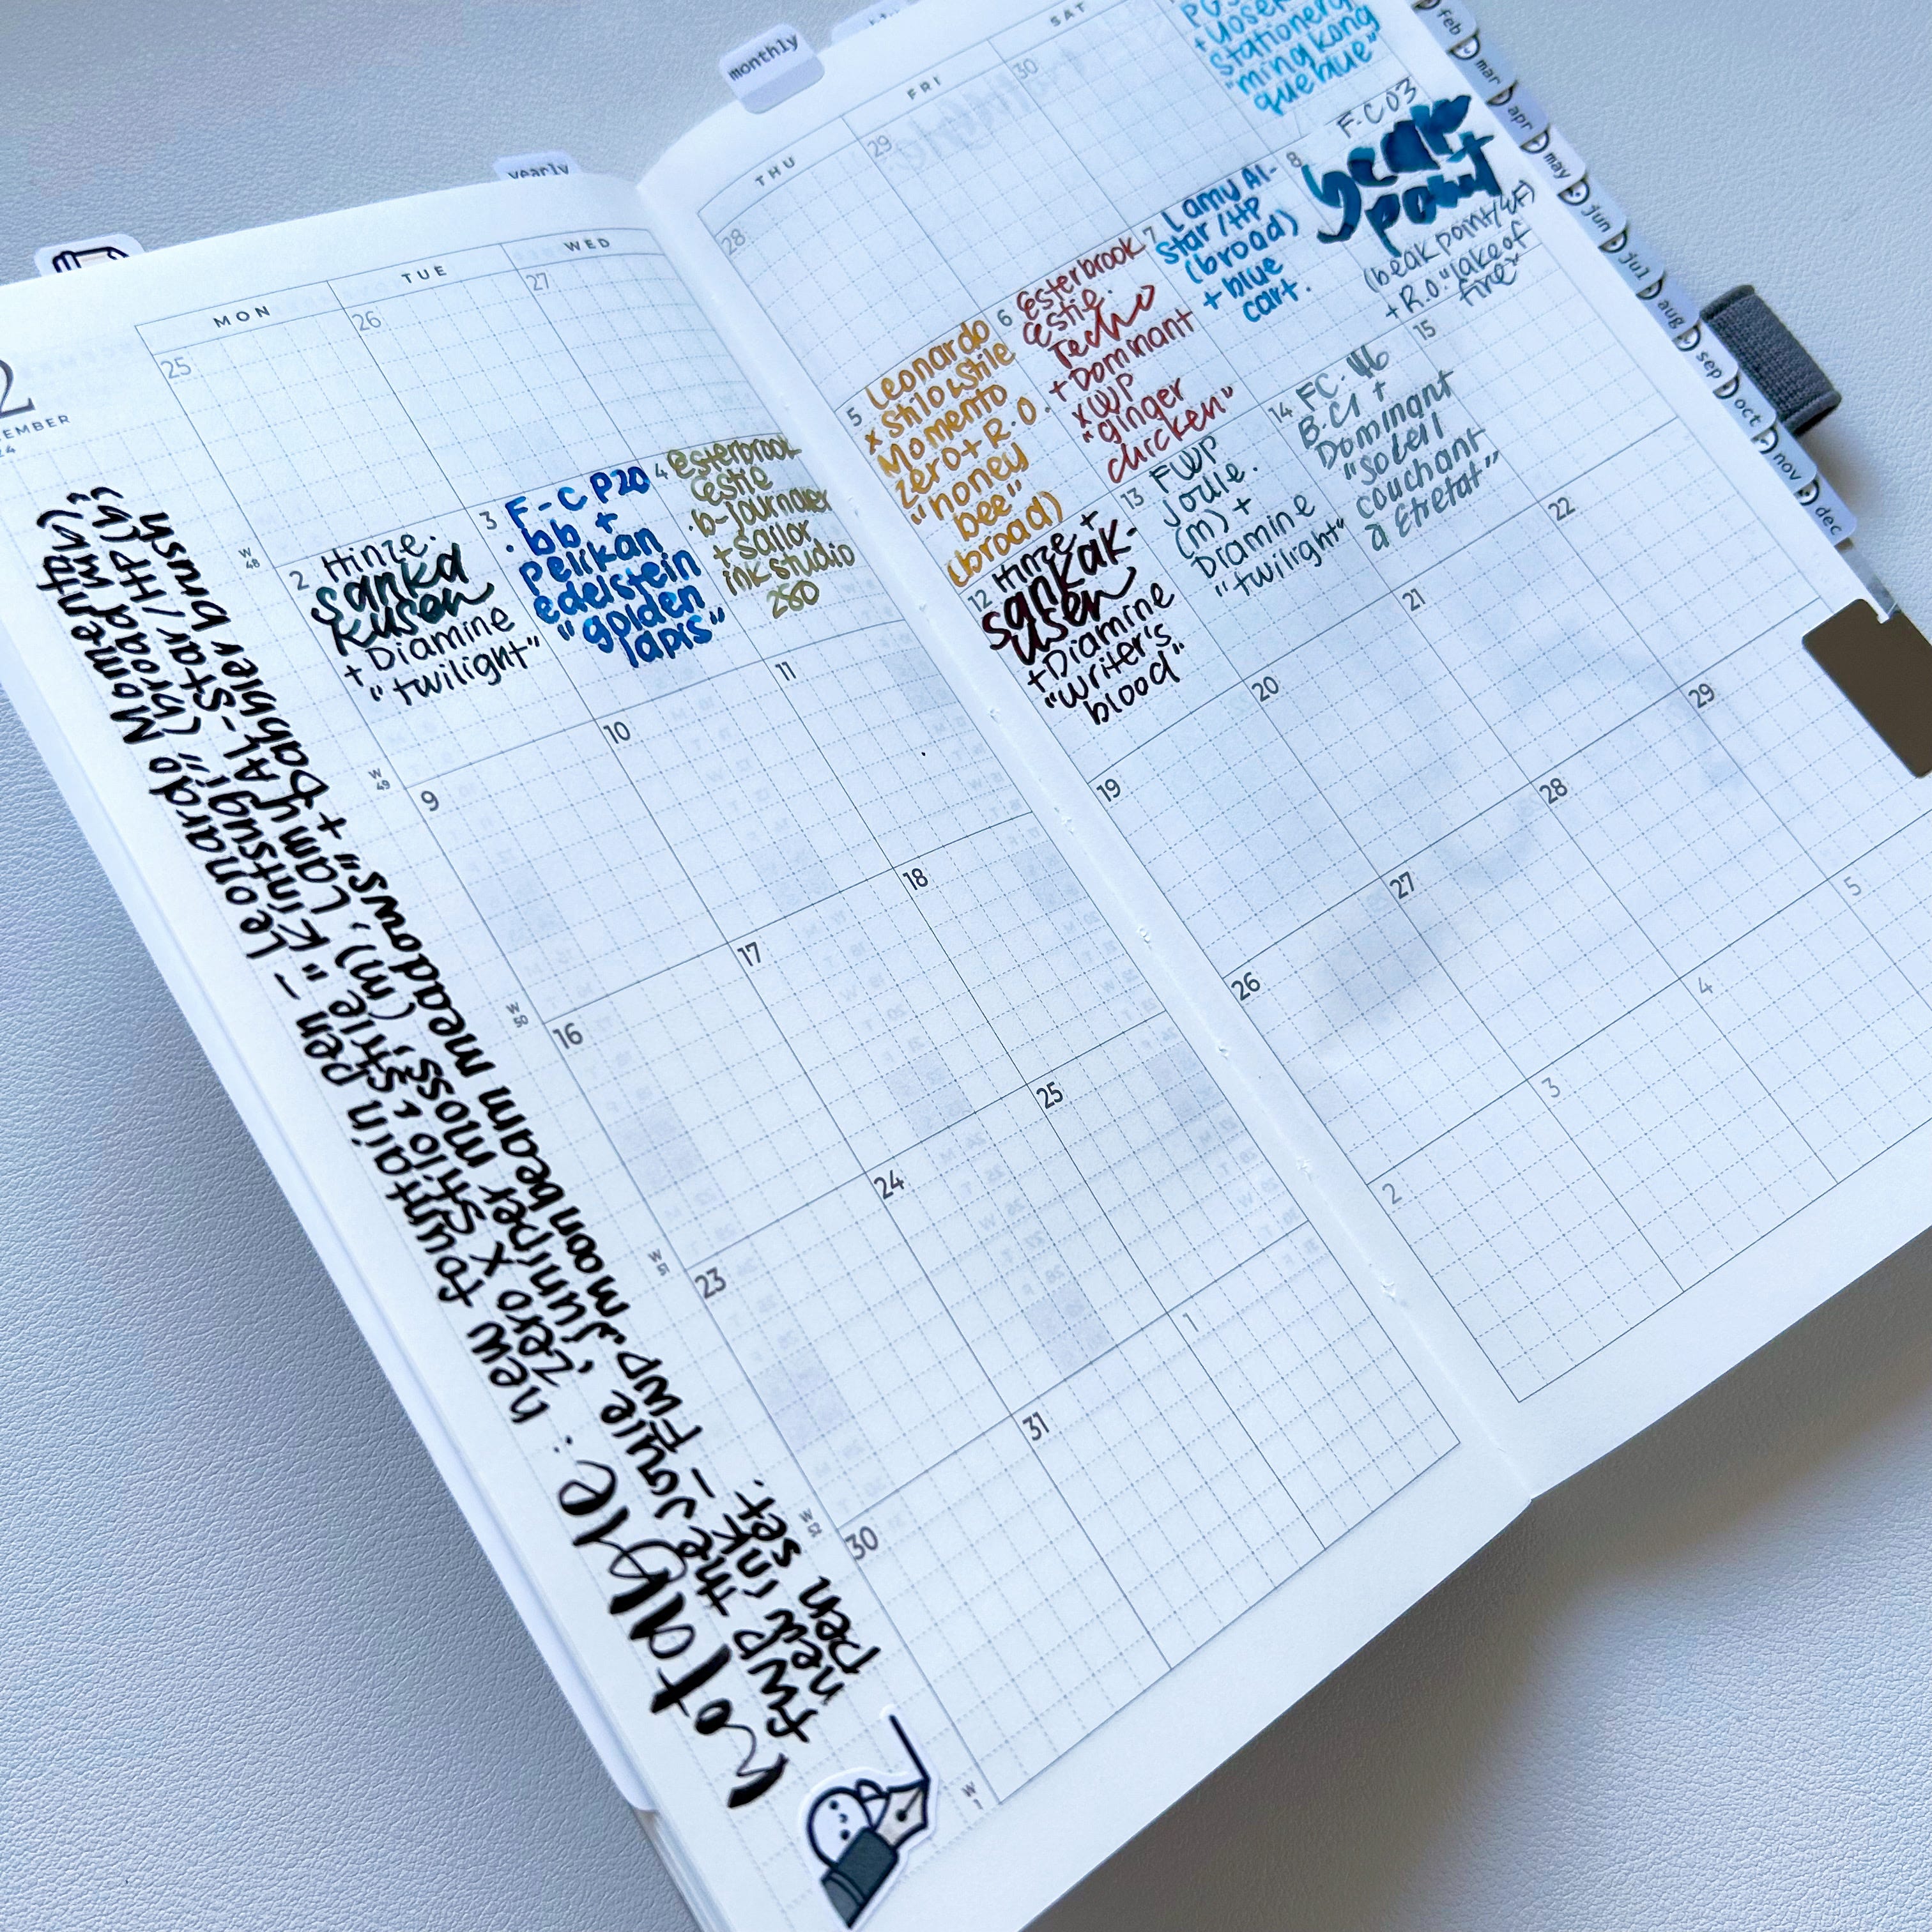 monthly
yearly
feb
mar
apr
may
jun
jul
aug
sep
oct
nov
dec
EMBER
MON
TUE
WED
THU
FRI
SAT
25
26
27
28
29
30
stationery
"ming kong
que blue"
W
48
2
Hinze.
sanka
kusen
+ Diamine
"twilight"
3
F-C P20
. bb +
pelikan
edelstein
"golden
lapis"
4
esterbrook
estie
.b-journaler
+ sailor
ink studio
280
5
Leonardo
x stilo & stile
Momento
zero + R.O.
"honey
bee"
(broad)
6
esterbrook
estie.
Techo
+ Dominant
x WP
"ginger
chicken"
7
Lamy Al-
star / HP
(broad)
+ blue
cart.
8
F-C 03
beak
point
(beak point/4F)
+ R.O. "lake of
fire"
W
49
9
10
11
12
Hinze +
sankak-
usen
+ Diamine
"writer's
blood"
13
FWP
Joule.
(m) +
Diamine
"twilight"
14
FC-46
B.CI +
Dominant
"soleil
couchant
à Etretat"
15
W
50
16
17
18
19
20
21
22
W
51
23
24
25
26
27
28
29
W
52
30
31
1
2
3
4
5
W
1
notable: new fountain pen - Leonardo Momento
zero x stilo & stile "kintsugi" (broad nib),
FWP the Joule, Juniper moss, (m), Lamy AL-Star/HP (b),
new ink - FWP "Moonbeam meadows" + Dabbler brush
pen set.